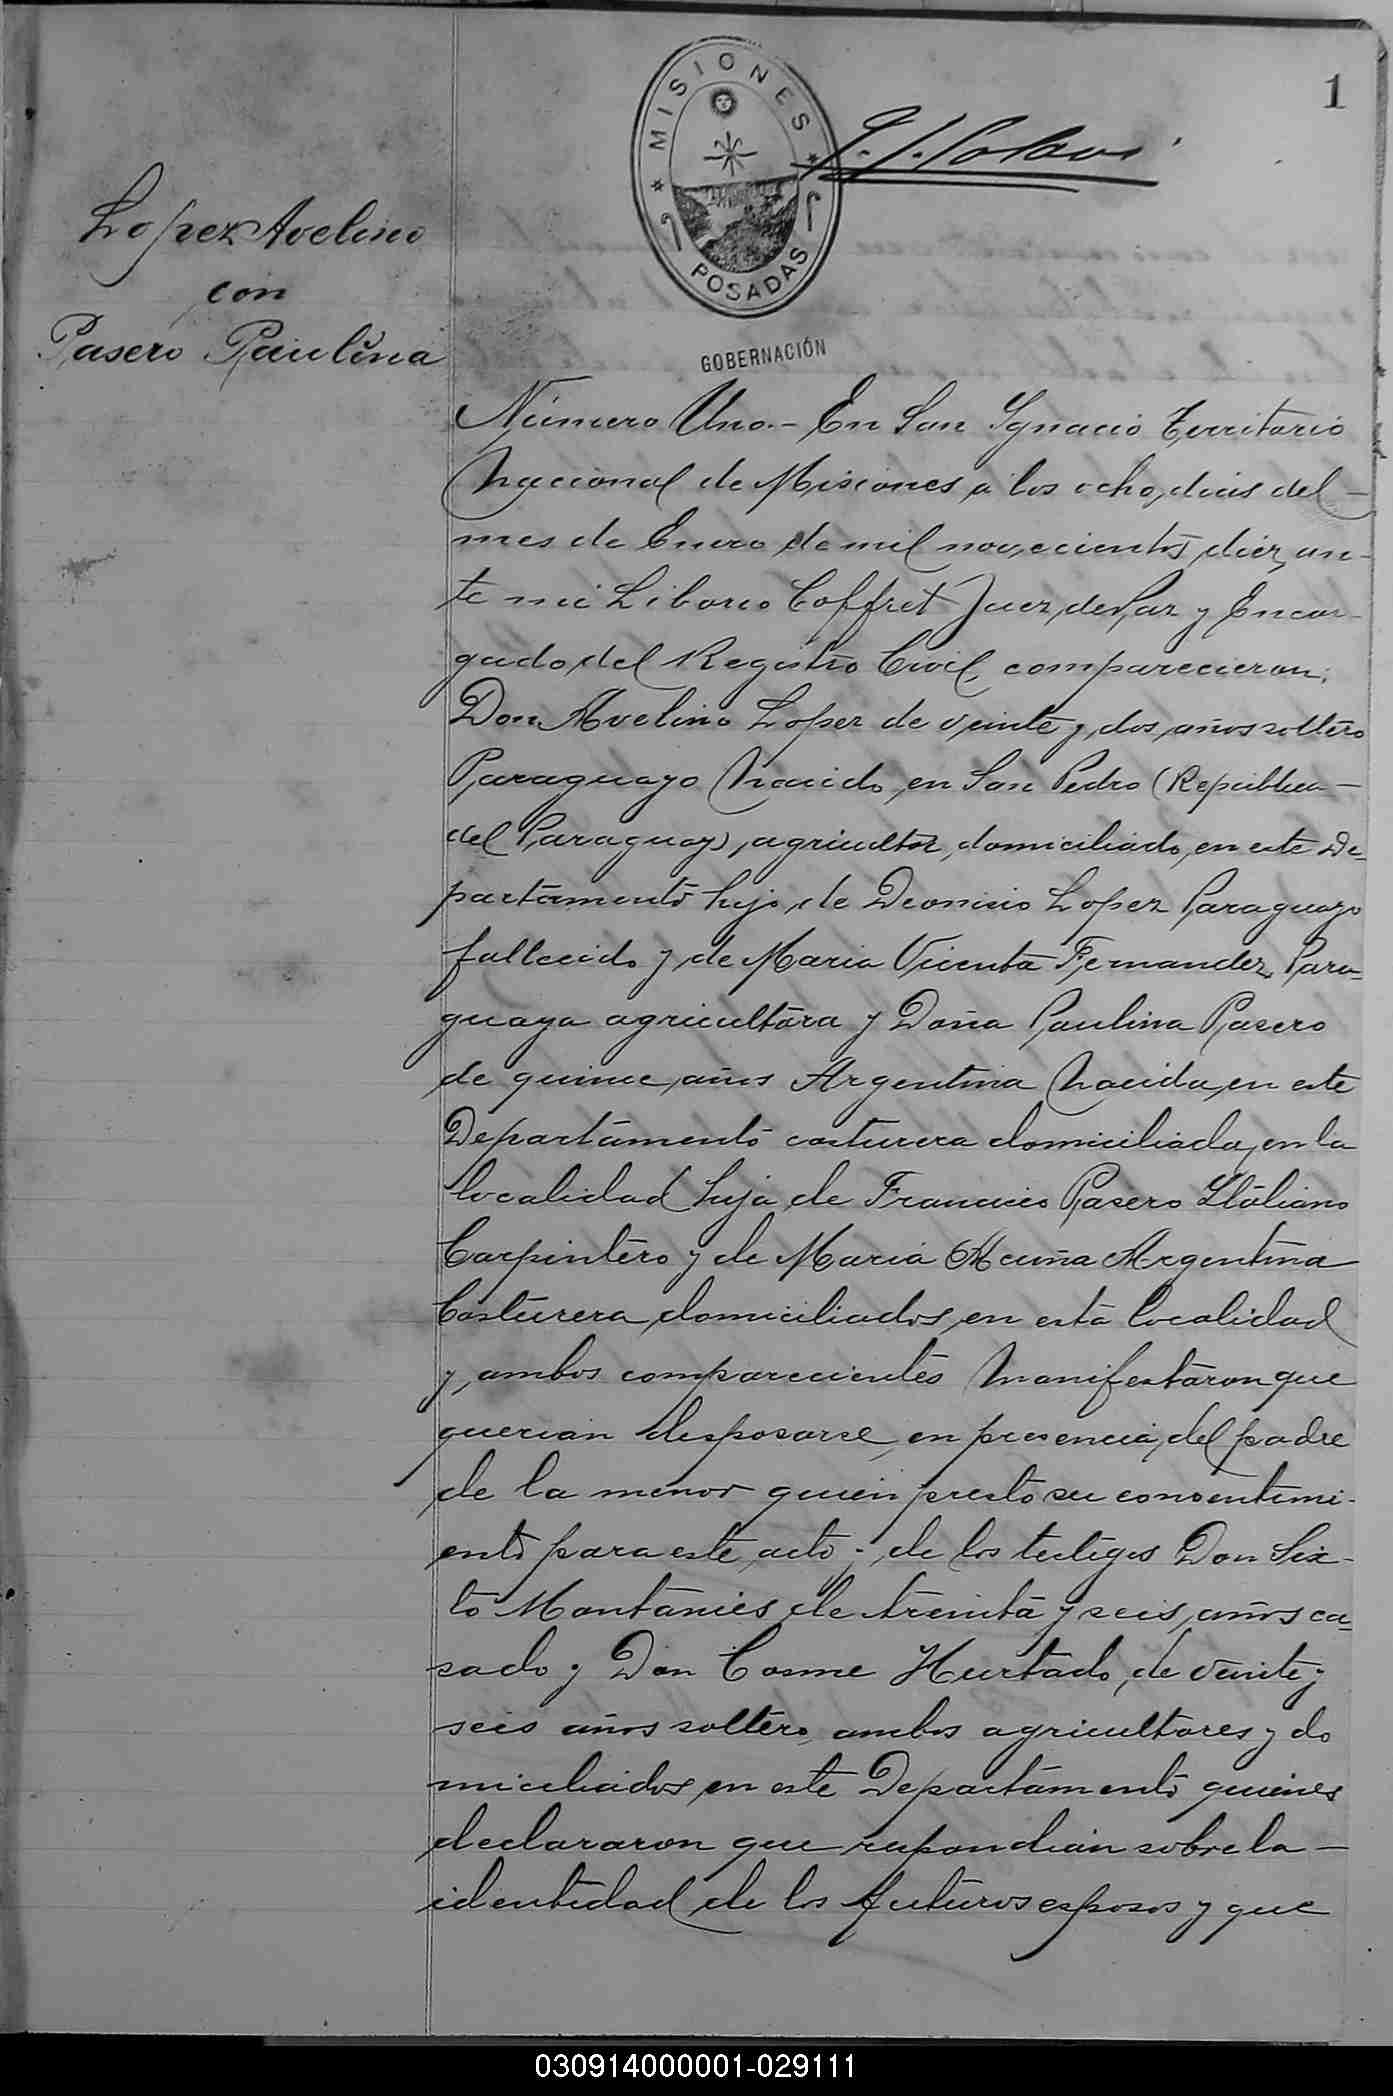 1
MISIONES
POSADAS
GOBERNACIÓN
Lopez Avelino
con
Pasero Paulina
Número Uno.- En San Ygnacio Territorio
Nacional de Misiones a los ocho dias del -
mes de Enero de mil novecientos diez, an-
te mi Liborio Coffret Juez de Paz y Encar-
gado del Registro Civil, comparecieron:
Don Avelino Lopez de veinte y dos años soltero
Paraguayo Nacido en San Pedro (Republica -
del Paraguay), agricultor, domiciliado en este De-
partamento hijo de Deonicio Lopez Paraguayo
fallecido y de Maria Vicenta Fernandez, Para-
guaya agricultora y Doña Paulina Pasero
de quince años Argentina Nacida en este
Departamento costurera domiciliada en la
localidad hija de Francisco Pasero Ytaliano
Carpintero y de Maria Acuña Argentina
Costurera domiciliados en esta localidad
y ambos comparecientes Manifestaron que
querian desposarse en presencia del padre
de la menor quien presto su consentimi-
ento para este acto y de los testigos Don Six-
to Montanies de treinta y seis años ca-
sado y Don Cosme Hurtado, de veinte y
seis años soltero, ambos agricultores y do
miciliados en este Departamento quienes
declararon que respondian sobre la -
identidad de los futuros esposos y que
030914000001-029111